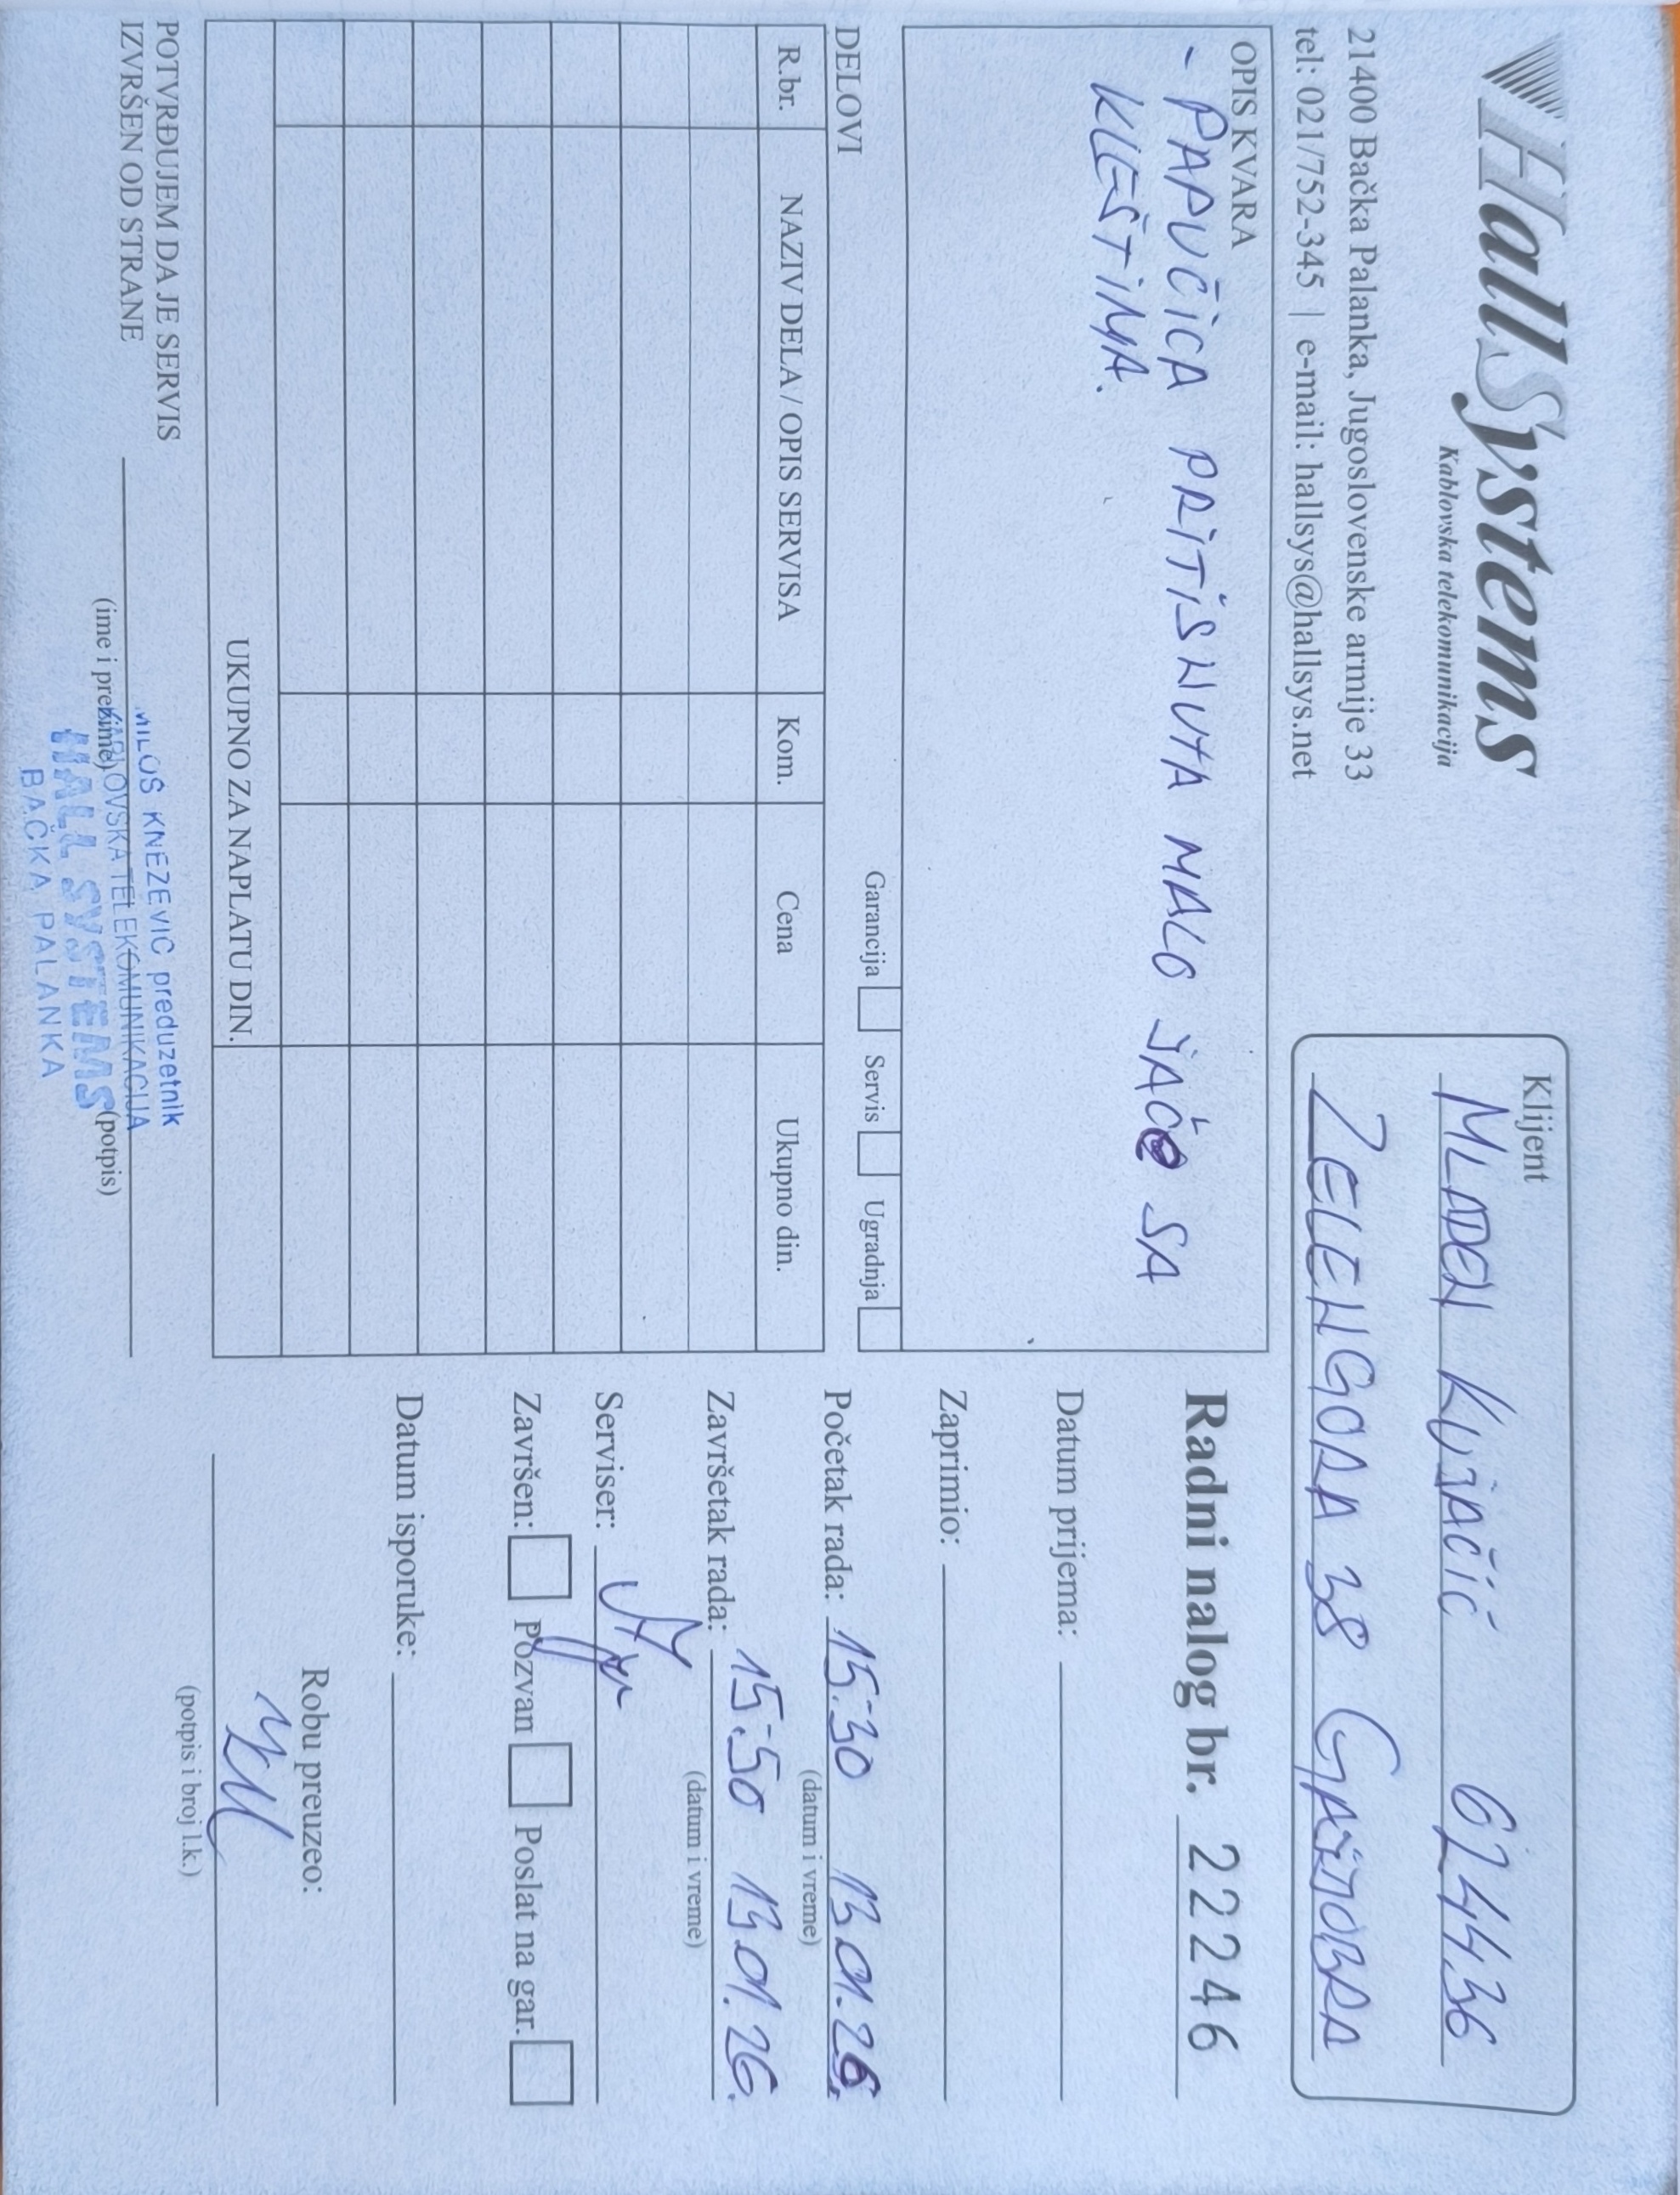 HallSystems
Kablovska telekomunikacija
21400 Bačka Palanka, Jugoslovenske armije 33
tel: 021/752-345 | e-mail: hallsys@hallsys.net
Klijent
MLADEN KUJAČIĆ 6244436
ZELENGORA 38 GAJDOBRA
OPIS KVARA
- PAPUČICA PRITISNUTA MALO JAČE SA
KLEŠTIMA.
Garancija Servis Ugradnja
DELOVI
R.br. NAZIV DELA / OPIS SERVISA Kom. Cena Ukupno din.
UKUPNO ZA NAPLATU DIN.
POTVRĐUJEM DA JE SERVIS
IZVRŠEN OD STRANE
(ime i prezime) (potpis)
MILOŠ KNEZEVIC preduzetnik
KABLOVSKA TELEKOMUNIKACIJA
HALL SYSTEMS
BAČKA PALANKA
Radni nalog br. 22246
Datum prijema:
Zaprimio:
Početak rada: 15:30 13.01.26.
(datum i vreme)
Završetak rada: 15:50 13.01.26.
(datum i vreme)
Serviser:
Završen: Pozvan Poslat na gar.
Datum isporuke:
Robu preuzeo:
(potpis i broj l.k.)